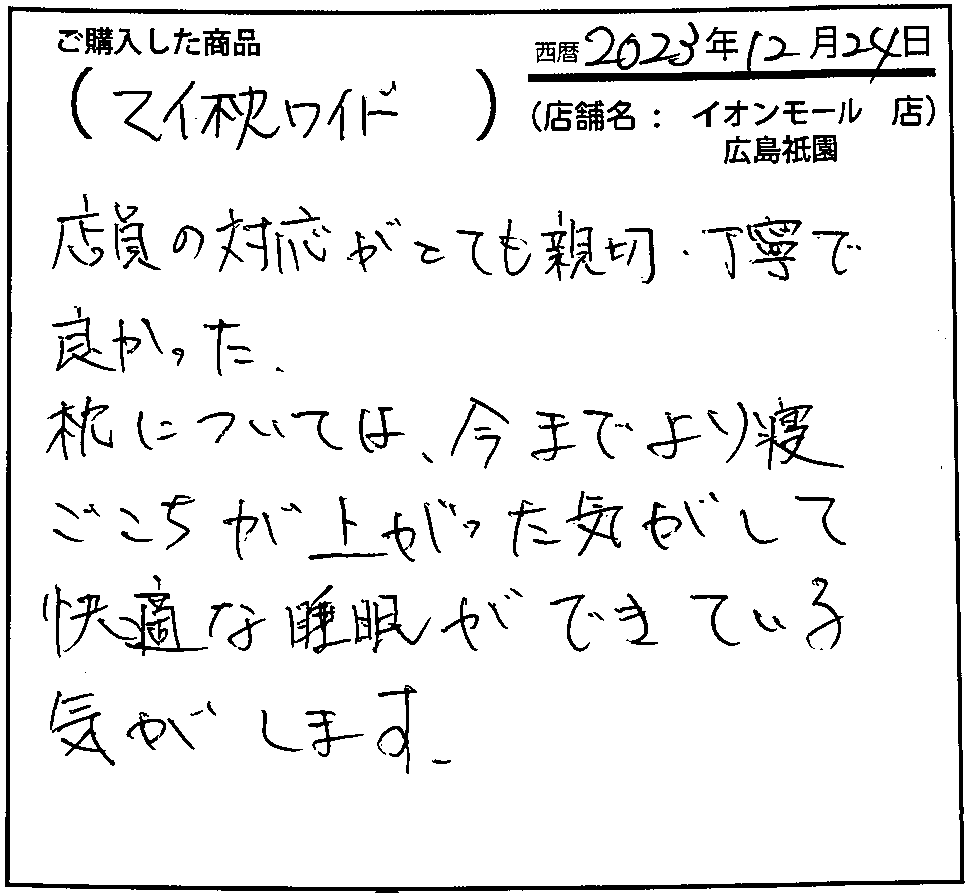 ご購入した商品
西暦 2023年12月24日
(マイ枕ワイド )
(店舗名: イオンモール 店)
広島祇園
店員の対応がとても親切・丁寧で
良かった.
枕については、今までより寝
ごこちが上がった気がして
快適な睡眠ができている
気がします.